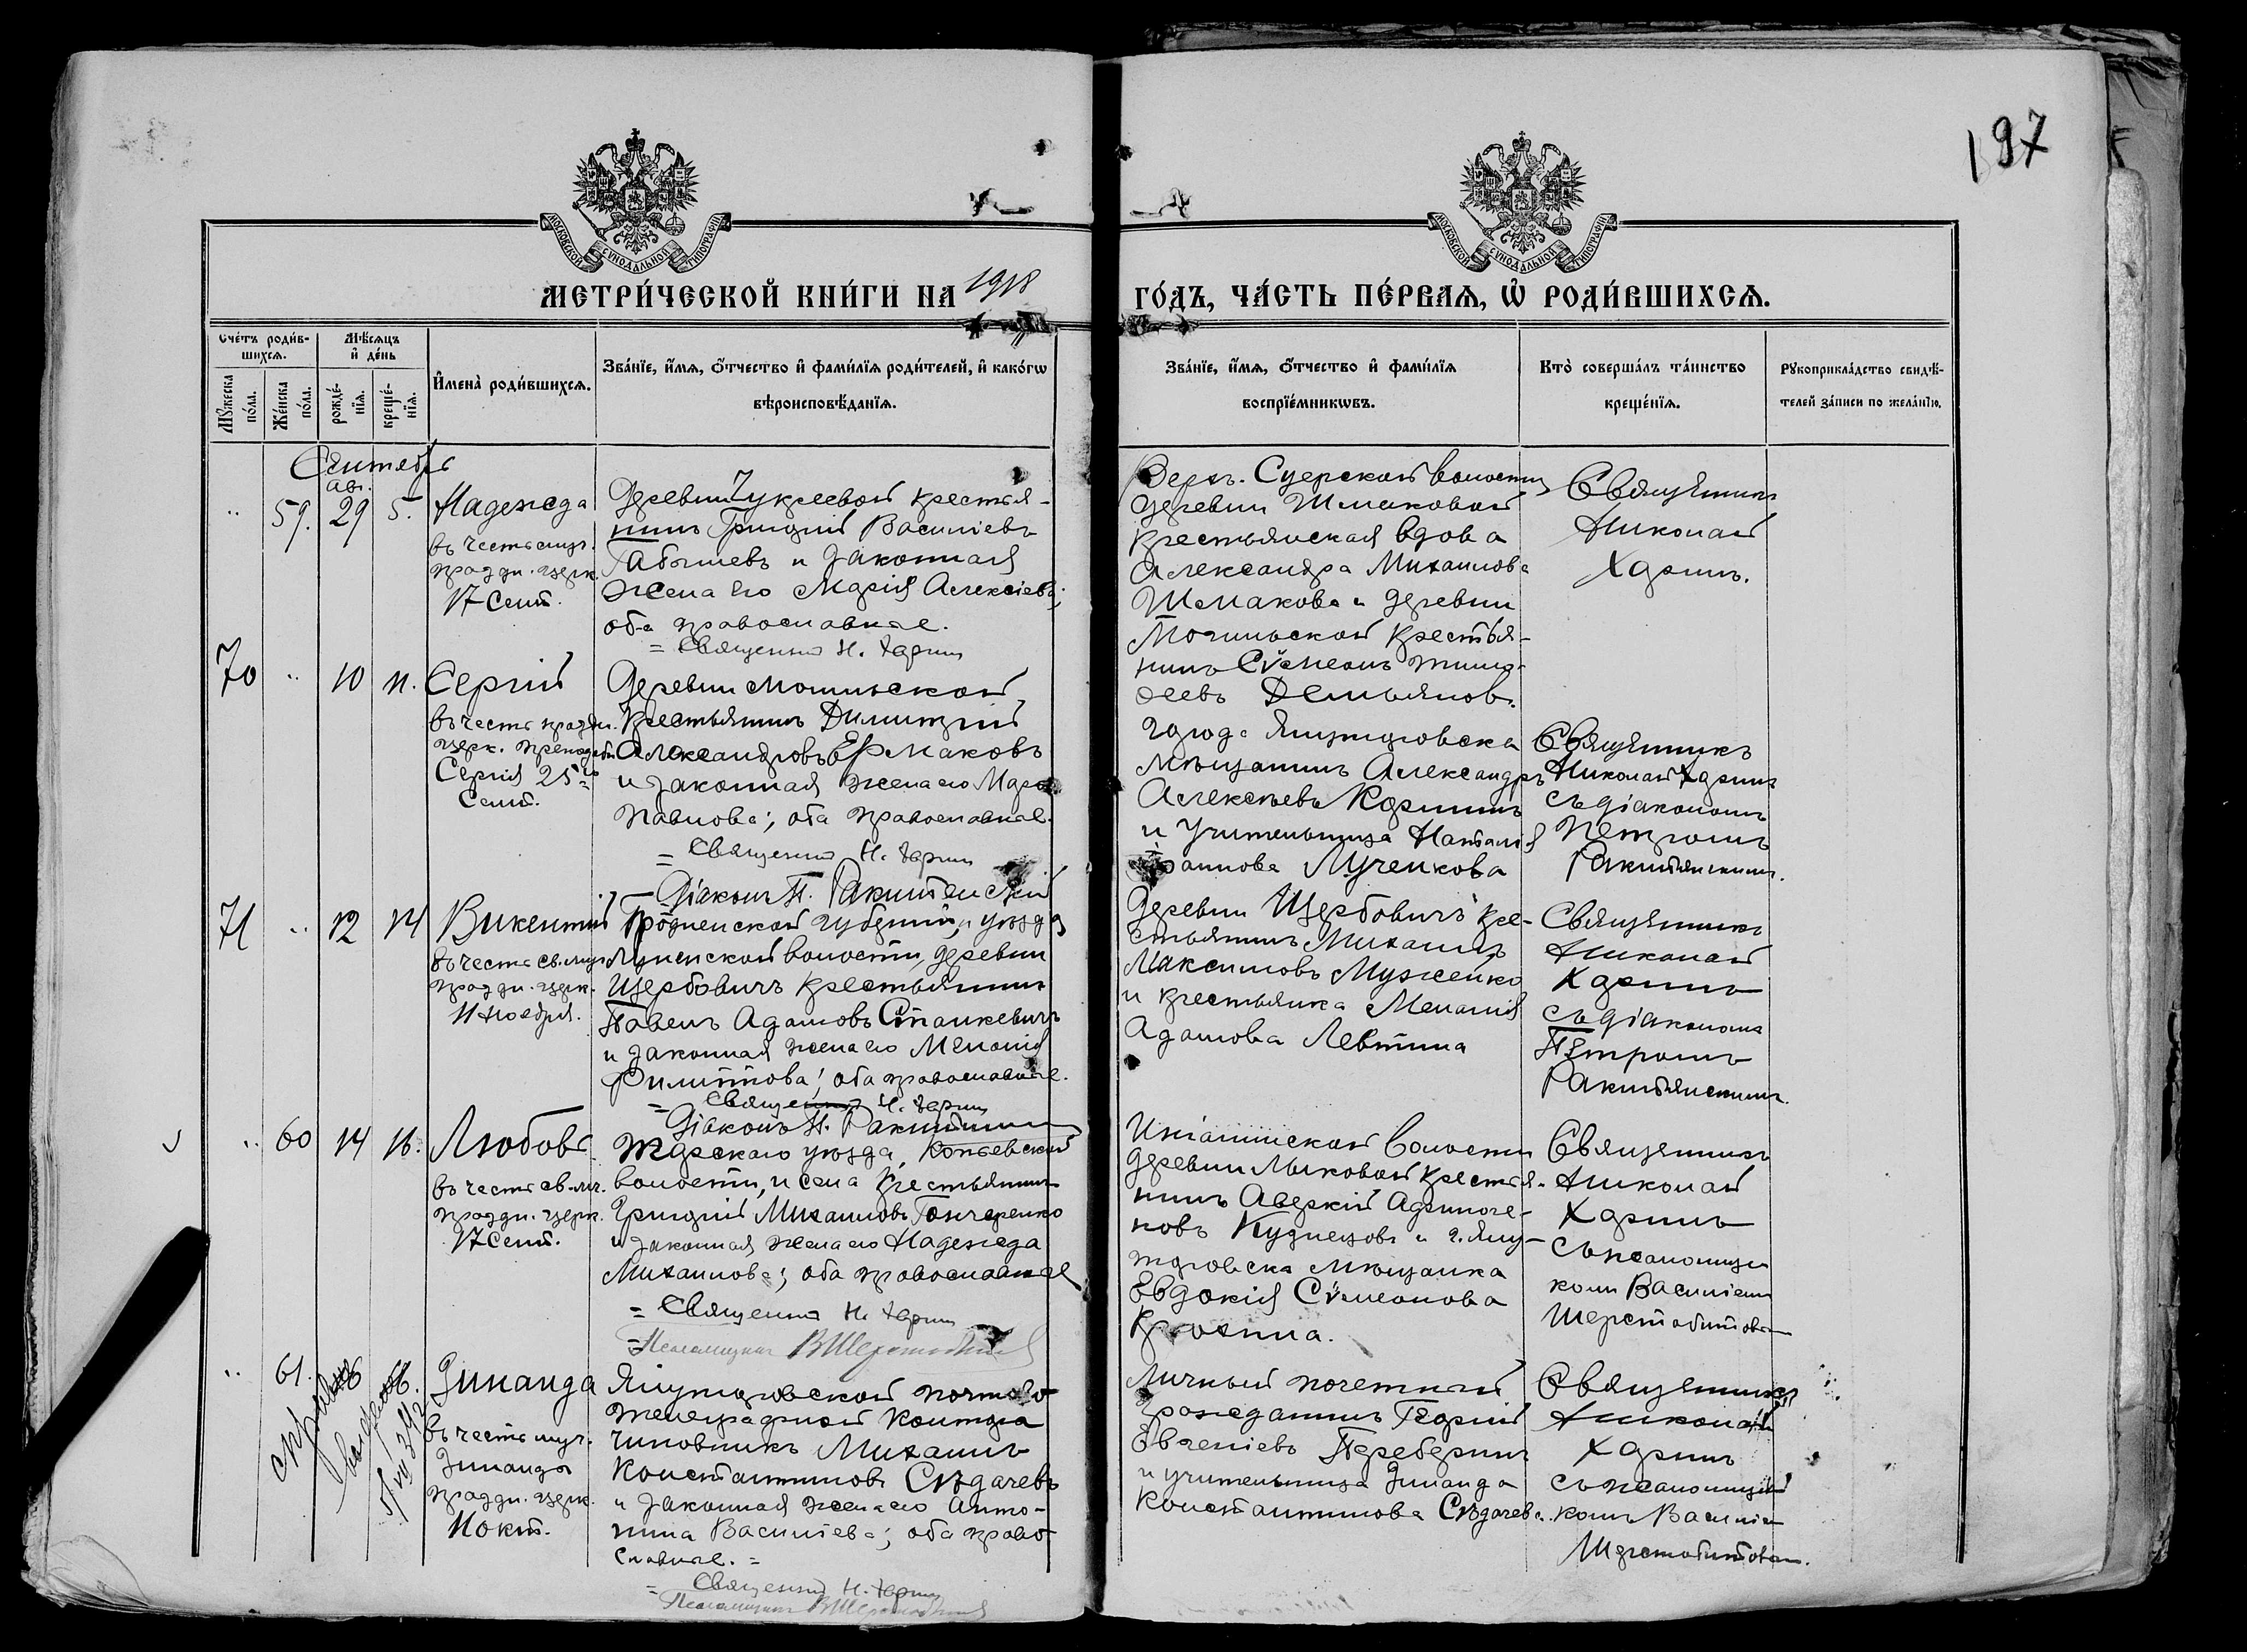 197
МОСКОВСКОЙ СѴНОДАЛЬНОЙ ТИПОГРАФІИ
МОСКОВСКОЙ СѴНОДАЛЬНОЙ ТИПОГРАФІИ
МЕТРИ́ЧЕСКОЙ КНИ́ГИ НА 1918
ГО́ДЪ, ЧА́СТЬ ПЕ́РВАѦ, Ѽ РОДИ́ВШИХСѦ.
Сче́тъ роди́в-
шихсѧ.
Мѣ́сѧцъ
и҆ де́нь
И҆мена̀ роди́вшихсѧ.
Зва́нїе, и҆́мѧ, ѻ҆́тчество и҆ фами́лїѧ роди́телей, и҆ како́гѡ
вѣроисповѣ́данїѧ.
Мꙋ́жеска
по́ла.
Же́нска
по́ла.
рожде́-
нїѧ.
креще́-
нїѧ.
Зва́нїе, и҆́мѧ, ѻ҆́тчество и҆ фами́лїѧ
воспрїе́мникѡвъ.
Кто̀ соверша́лъ та́инство
креще́нїѧ.
Рꙋкоприкла́дство свидѣ́-
телей за́писи по жела́нїю.
Сентябрь
ав.
59. 29 5. Надежда
въ честь муч.
праздн. церк.
17 Сент.
Деревни Чукреевой крестья-
нинъ Григорій Василіевъ
Габышевъ и законная
жена его Марія Алексіева;
оба православные.
= Священник Н. Харин
Верх. Суерской волости
деревни Шмаковой
крестьянская вдова
Александра Михаилова
Шмакова и деревни
Могильской крестья-
нинъ Сѵмеонъ Тимо-
феевъ Демьянов.
Священник
Николай
Харинъ.
70 " 10 11. Сергій
въ честь праздн.
церк. преподобн.
Сергія 25го
Сент.
Деревни Могильской
крестьянинъ Димитрій
Александровъ Ермаковъ
и законная жена его Марія
Павлова; оба православные.
= Священник Н. Харин
= Діаконъ П. Ракитянскій
города Ялуторовска
мѣщанинъ Александръ
Алексѣевъ
и учительница Наталія
Лученкова
Священникъ
Николай Харинъ
съ діакономъ
Петромъ
Ракитянскимъ.
71 " 12 14 Викентій
въ честь св. муч.
праздн. церк.
11 ноября.
Гродненской губерніи и уѣзда
Лунненской волости, деревни
Щербовичъ крестьянинъ
Павелъ Адамовъ Станкевичъ
и законная жена его Меланія
Филиппова; оба православные.
= Священник Н. Харин
Діаконъ П. Ракитянскій
Деревни Щербовичъ кре-
стьянинъ Михаилъ
Максимовъ Мужейко
и крестьянка Меланія
Адамова Левтина
Священникъ
Николай
Харинъ
съ діакономъ
Петромъ
Ракитянскимъ.
" 60 14 16. Любовь
въ честь св. муч.
праздн. церк.
17 Сент.
Тарскаго уѣзда,
волости, и села крестьянинъ
Григорій Михаиловъ Гончаренко
и законная жена его Надежда
Михаилова; оба православные
= Священник Н. Харин
= Псаломщикъ В Шерстобитов
волости
деревни Лыковой крестья-
нинъ Аверкій
Кузнецовъ и г. Ялу-
торовска мѣщанка
Евдокія Сѵмеонова
Священникъ
Николай
Харинъ
съ псаломщи-
комъ Василіемъ
Шерстобитовымъ
" 61. 16. Зинаида
въ честь муч.
Зинаиды
праздн. церк.
11 окт.
справка
выдана
Ялуторовской почтово
телеграфной конторы
чиновникъ Михаилъ
Константиновъ Сѣдачевъ
и законная жена его Анто-
нина Василіева; оба право
славные. =
= Священник Н. Харин
Псаломщикъ В Шерстобитов
Личный почетный
гражданинъ Георгій
Евгеніевъ
и учительница Зинаида
Константинова Сѣдачева.
Священникъ
Николай
Харинъ
съ псаломщи-
комъ Василіем
Шерстобитовым.